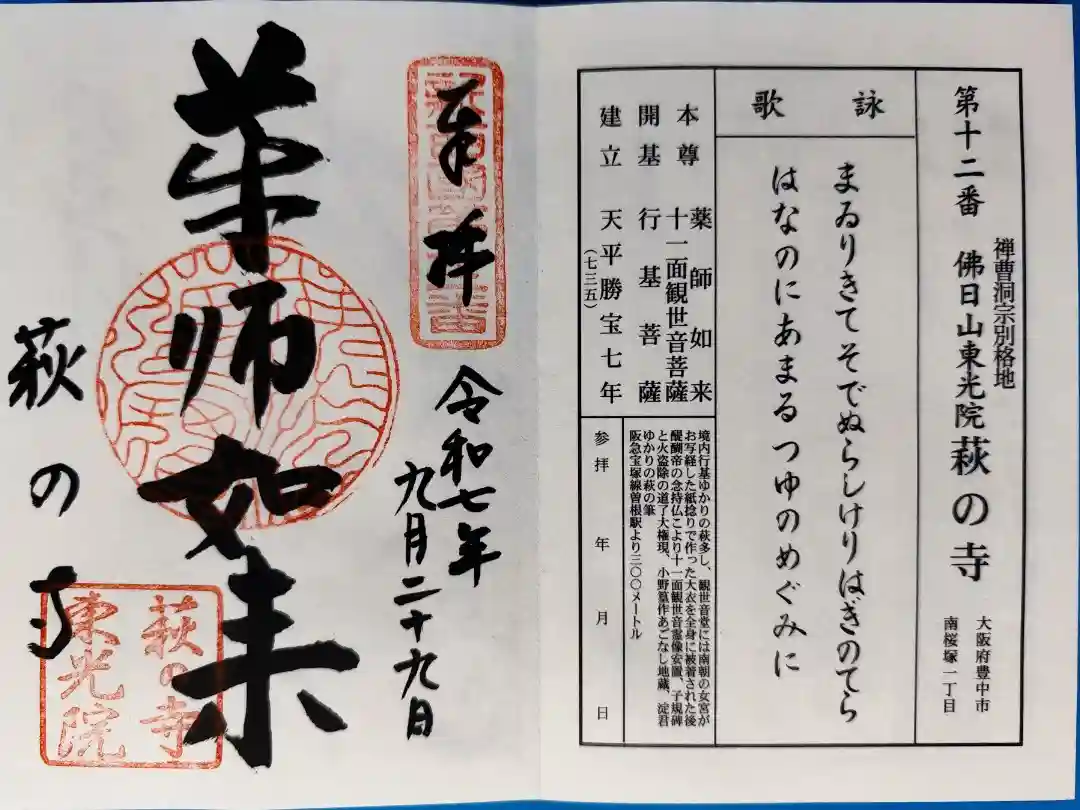 第十二番
禅曹洞宗別格地
佛日山東光院萩の寺
大阪府豊中市
南桜塚一丁目
詠歌
まゐりきてそでぬらしけりはぎのてら
はなのにあまるつゆのめぐみに
本尊 薬師如来
十一面観世音菩薩
開基 行基菩薩
建立 天平勝宝七年
(七三五)
境内行基ゆかりの萩多し、観世音堂には南朝の女宮が
お写経した紙捻りで作った大衣を全身に被着された後
醍醐帝の念持仏こより十一面観世音霊像安置、子規碑
と火盗除の道了大権現、小野篁作あごなし地蔵、淀君
ゆかりの萩の筆
阪急宝塚線曽根駅より三〇〇メートル
参拝 年 月 日
奉拝
令和七年
九月二十九日
薬師如来
萩の寺
萩の寺
東光院